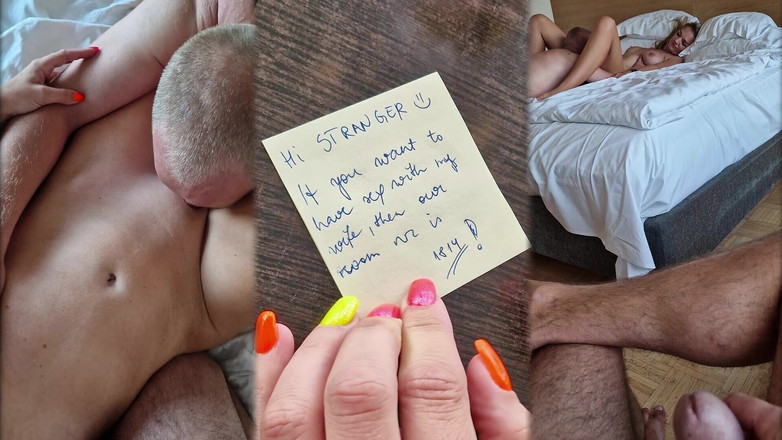 Hi STRANGER
If you want to
have sex with my
wife, then our
room nr is
1814!